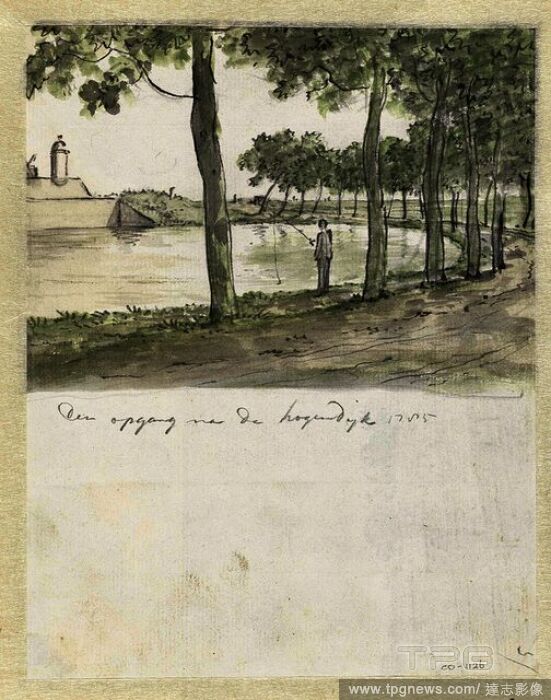 Den opgang na de hogendijk 1785
TPG
CO-1126
www.tpgnews.com / 達志影像